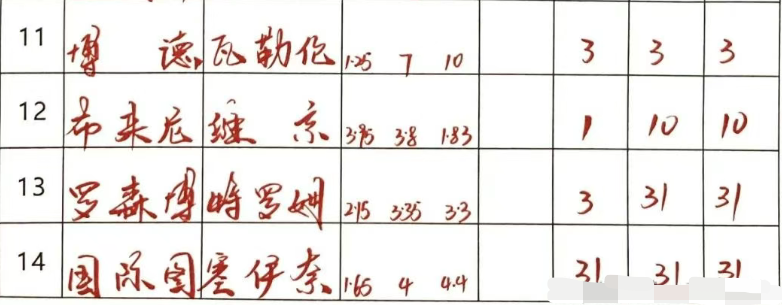 11 博德 瓦勒伦 1.25 7 10 3 3 3
12 布来尼 缠京 3.95 3.8 1.83 1 10 10
13 罗森博 特罗姆 2.15 3.35 3.3 3 31 31
14 国际图 塞伊奈 1.65 4 4.4 31 31 31